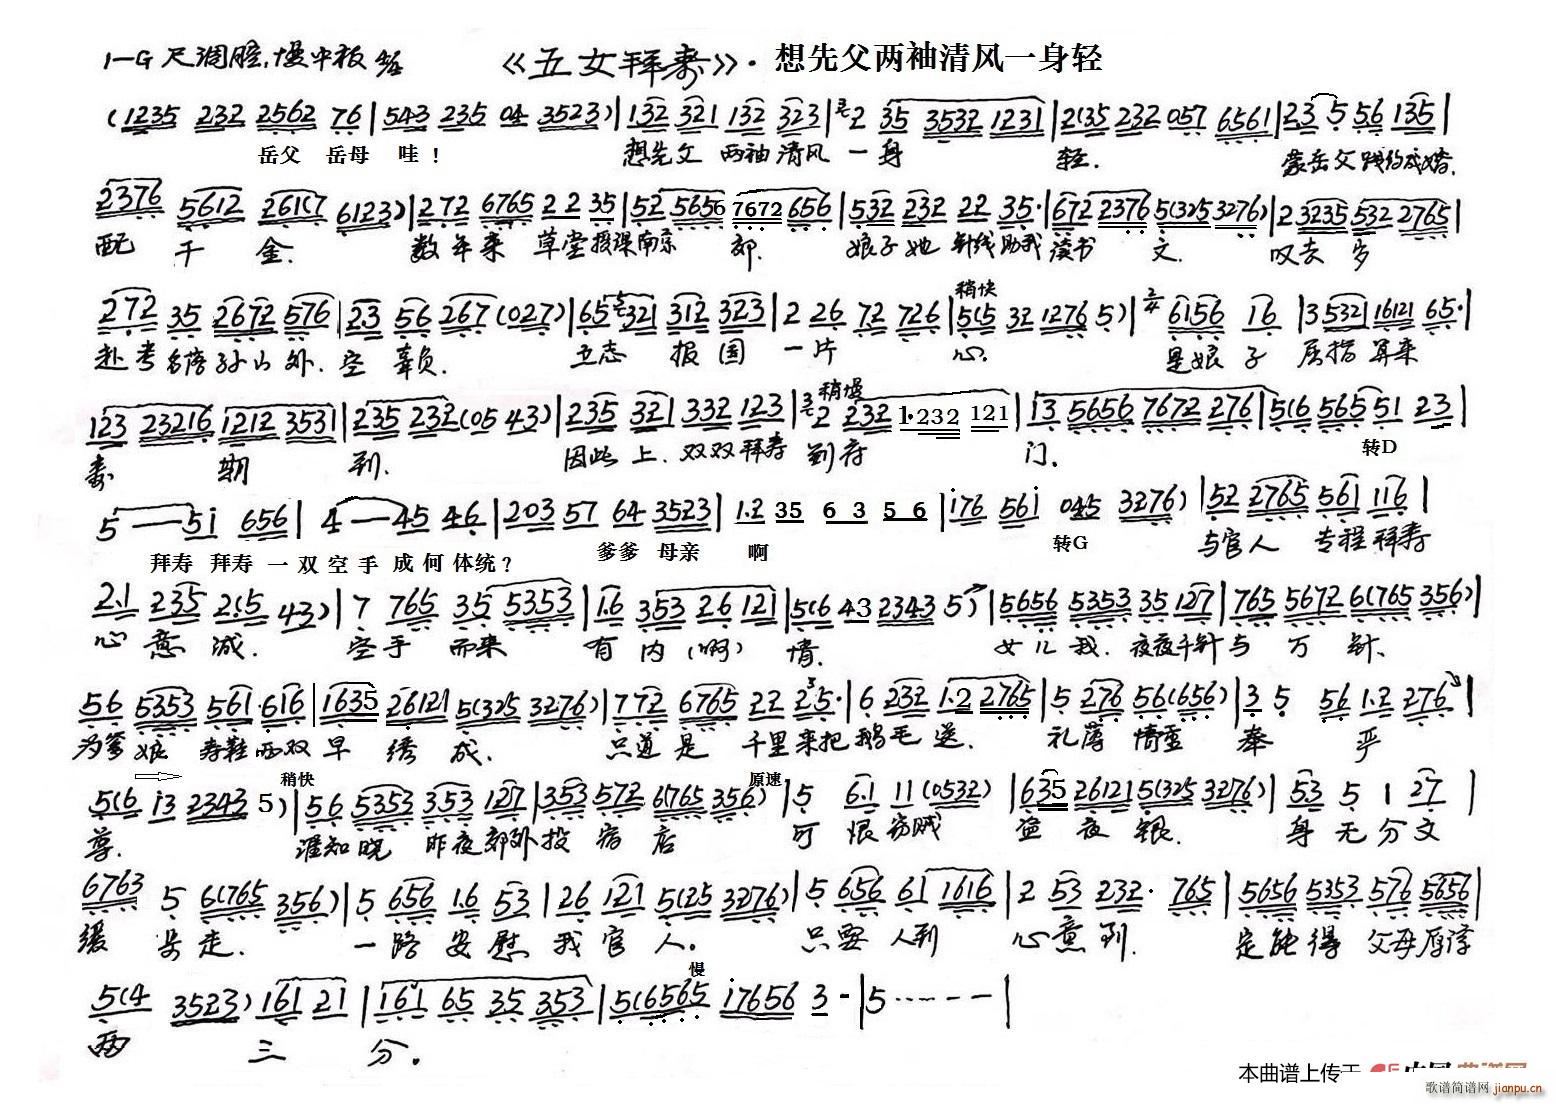 1=G 尺调腔,慢中板 《五女拜寿》·想先父两袖清风一身轻
(1235 232 2562 76 | 543 235 04 3523) | 132 321 132 323 | 2 35 3532 1231 | 2(35 232 057 6561 | 2.3 5 56 135 |
岳父 岳母 哇！ 想先父 两袖清风 一身 轻. 蒙岳父践约成婚.
2376 5612 261(7 6123) | 272 6765 22 35 | 52 5656 7672 656 | 532 232 22 35· | 672 2376 5(325 3276) | 2 3235 532 2765 |
配 千 金. 数年来 草堂授课南京 郊. 娘子她 针线助我读书 文. 叹去 岁
272 35 2672 576 | 23 56 267 (027) | 65 321 312 323 | 2 26 72 726 | 稍快 5(5 32 1276 5) | 2/4 6156 16 | 3532 16121 65· |
赴考名落孙山外. 空 辜负. 立志 报国 一片 心. 是娘子 屈指算来
123 23216 1212 3531 | 235 232 (05 43) | 235 32 332 123 | 稍慢 2 232 1·232 121 | 13 5656 7672 276 | 5(6 565 51 23 |
寿 期 到. 因此上. 双双拜寿 到府 门. 转D
5 — — 5i 656 | 4 — — 45 46 | 203 57 64 3523 | 1.2 35 63 56 | i76 56i 045 3276) | 52 2765 56i 116 |
拜寿 拜寿 一双空手成何体统？ 爹爹 母亲 啊 转G 与官人 专程拜寿
2.1 235 2(5 43) | 7 765 35 5353 | 1.6 353 26 121 | 5(6 43 2343 5) | 5656 5353 35 127 | 765 5672 6(765 356) |
心意诚. 空手 而来 有内(啊)情. 女儿我. 夜夜千针与万针、
56 5353 561·616 | 1635 26121 5(325 3276) | 772 6765 22 25· | 6 232 1·2 2765 | 5 276 56(656) | 3 5 56 1.2 276 |
为爹娘 寿鞋两双早绣成. 只道是 千里来把鹅毛送. 礼薄情重 奉 严
5(6 i3 2343 5) | 稍快 56 5353 3.53 127 | 353 572 6(765 356) | 原速 5 6.1 11 (0532) | 635 26121 5(325 3276) | 53 5 1 27 |
尊. 谁知晓 昨夜郊外投宿店 可恨窃贼 盗夜银. 身无分文
6763 5 6(765 356) | 5 656 1.6 53 | 26 121 5(25 3276) | 5 656 61 1616 | 2 53 232· 765 | 5656 5353 576 5656 |
缓步走. 一路安慰我官人. 只要人到 心意到. 定能得 父母厚谆
5(4 3523) 161 21 | 161 65 35 353 | 慢 5(6565 i7656 3 - | 5 ······ — |
两 三 分.
本曲谱上传于
歌谱简谱网 jianpu.cn